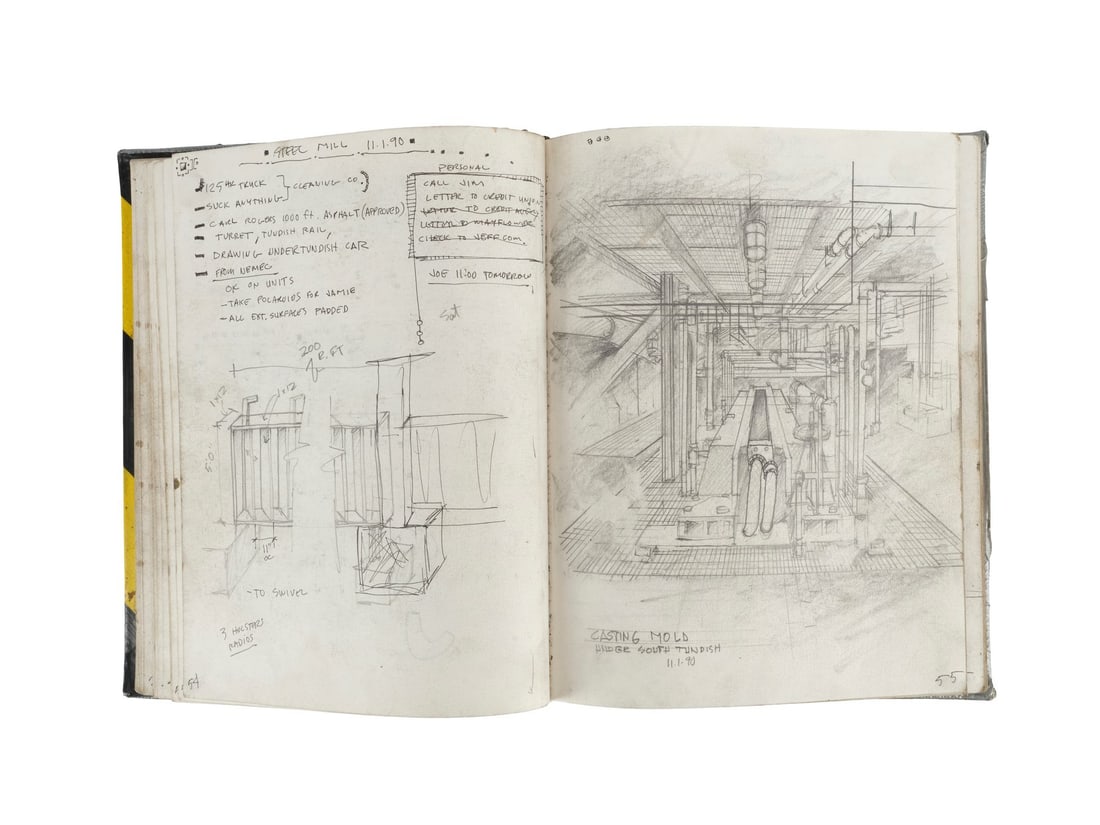 STEEL MILL 11.1.90
125 HR TRUCK } CLEANING CO.
SUCK ANYTHING
CARL ROGERS 1000 ft. ASPHALT (APPROVED)
TURRET, TUNDISH RAIL,
DRAWING UNDERTUNDISH CAR
FROM NEMEC
OK ON UNITS
-TAKE POLAROIDS FOR JAMIE
-ALL EXT. SURFACES PADDED
PERSONAL
CALL JIM
LETTER TO CREDIT UNION
LETTER TO CREDIT
LETTER TO MAYFLOWER
CHECK TO VERFCOM.
JOE 11:00 TOMORROW
Sat
200
R. FT
1x12
1x12
5'0"
11"
OC
-TO SWIVEL
3 HOLSTERS
RADIOS
54
CASTING MOLD
UNDER SOUTH TUNDISH
11.1.90
55